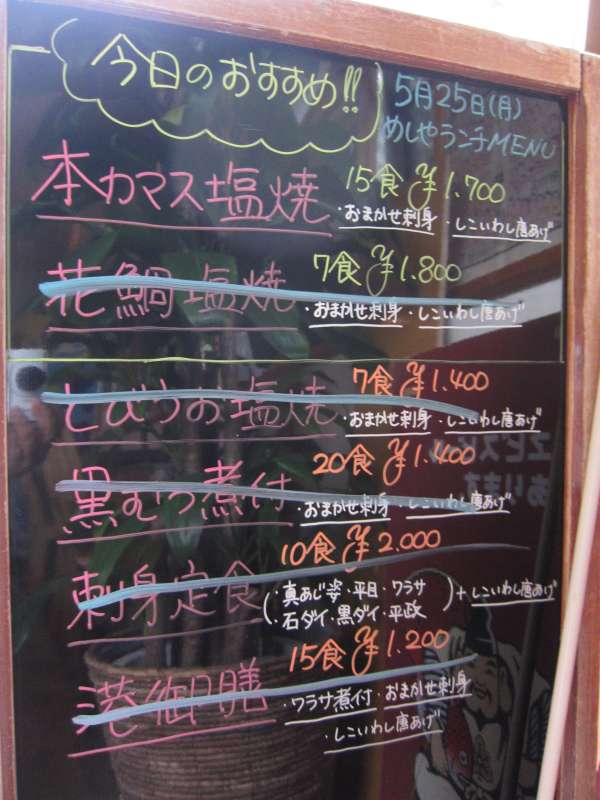 今日のおすすめ!!
5月25日(月)
めしやランチMENU
本カマス塩焼 15食 ¥1.700
・おまかせ刺身 ・しこいわし唐あげ
花鯛塩焼 7食 ¥1.800
・おまかせ刺身 ・しこいわし唐あげ
とびうお塩焼 7食 ¥1.400
・おまかせ刺身 ・しこいわし唐あげ
黒むつ煮付 20食 ¥1.400
・おまかせ刺身 ・しこいわし唐あげ
刺身定食 10食 ¥2.000
(・真あじ姿・平目・ワラサ
石ダイ・黒ダイ・平政) +しこいわし唐あげ
港御膳 15食 ¥1.200
・ワラサ煮付 ・おまかせ刺身
・しこいわし唐あげ
ヱビスビール
あります